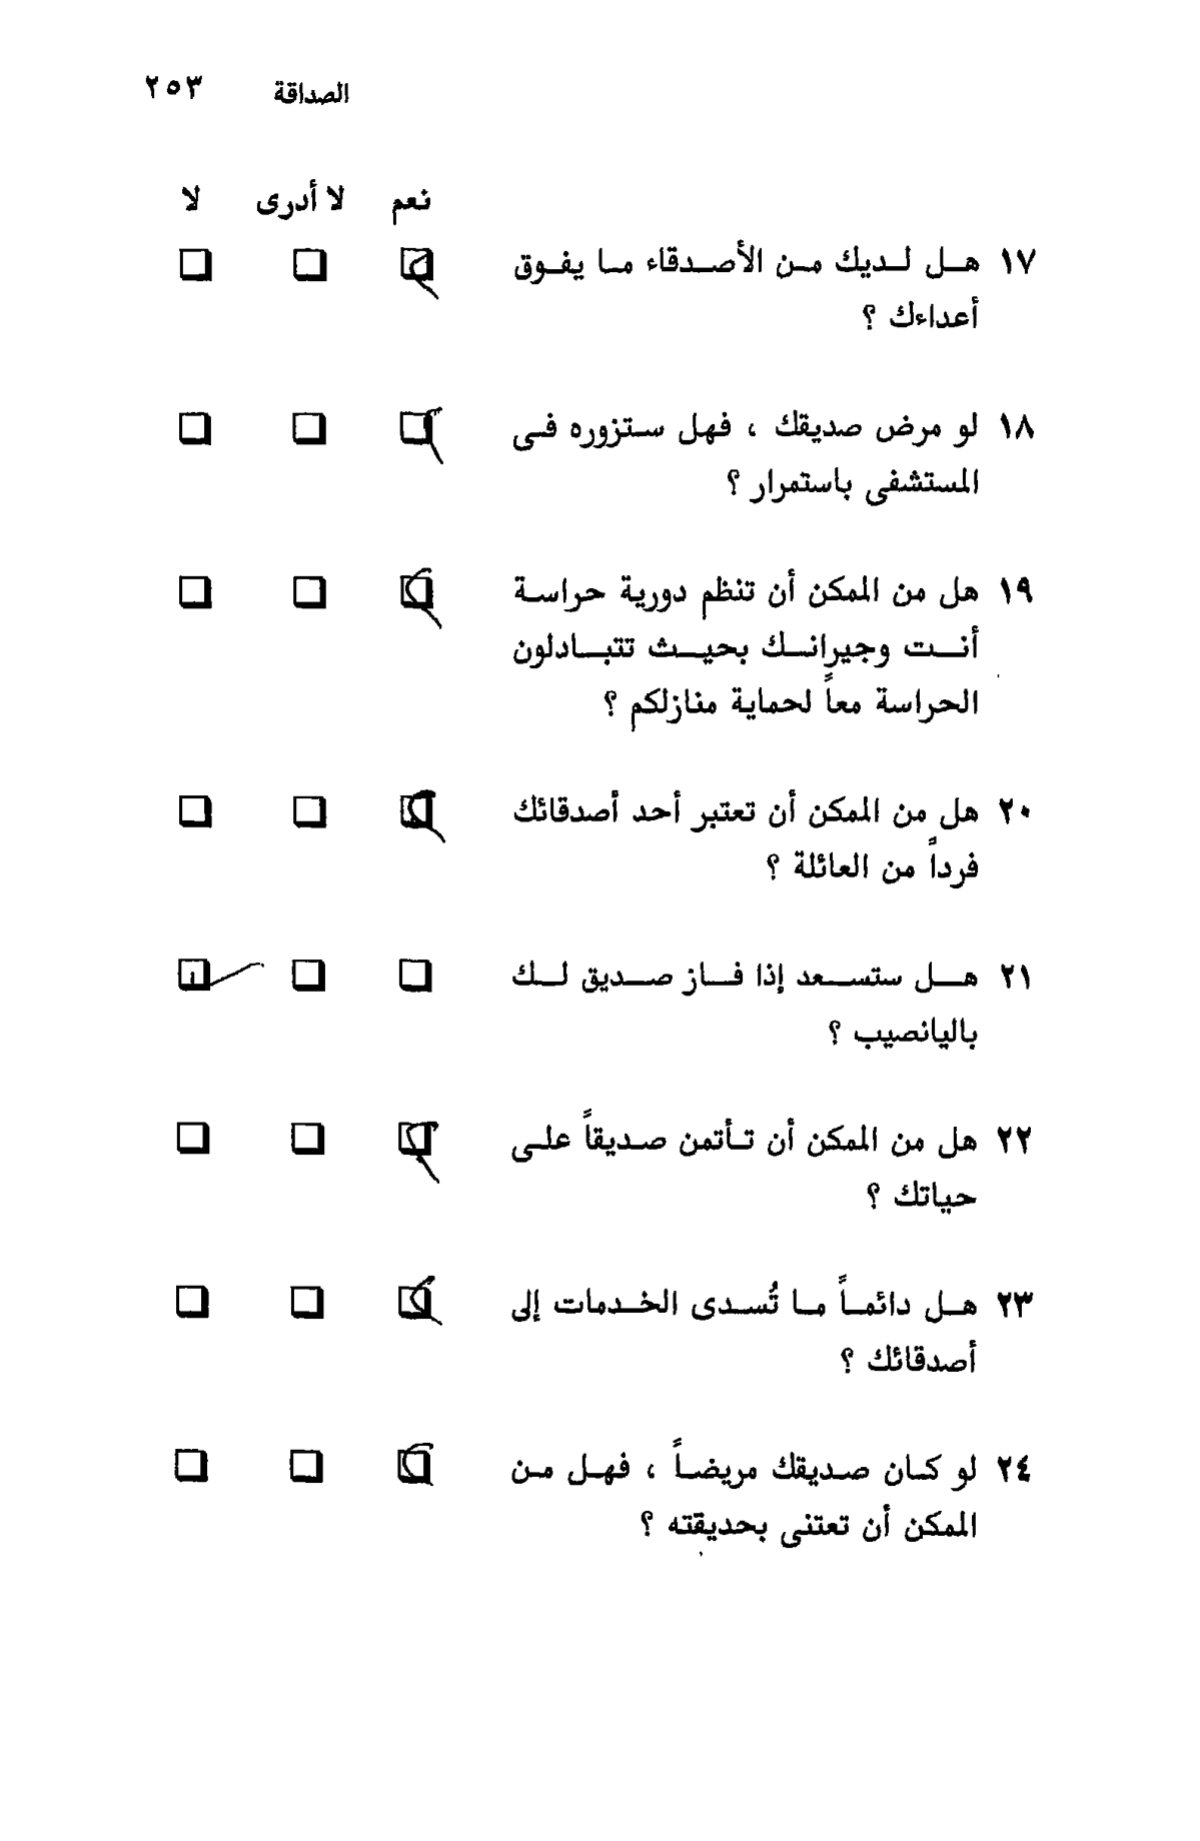 الصداقة ٢٥٣
نعم لا أدرى لا
١٧ هل لديك من الأصدقاء ما يفوق
أعداءك ؟
١٨ لو مرض صديقك ، فهل ستزوره فى
المستشفى باستمرار ؟
١٩ هل من الممكن أن تنظم دورية حراسة
أنت وجيرانك بحيث تتبادلون
الحراسة معاً لحماية منازلكم ؟
٢٠ هل من الممكن أن تعتبر أحد أصدقائك
فرداً من العائلة ؟
٢١ هل ستسعد إذا فاز صديق لك
باليانصيب ؟
٢٢ هل من الممكن أن تأتمن صديقاً على
حياتك ؟
٢٣ هل دائماً ما تُسدى الخدمات إلى
أصدقائك ؟
٢٤ لو كان صديقك مريضاً ، فهل من
الممكن أن تعتنى بحديقته ؟